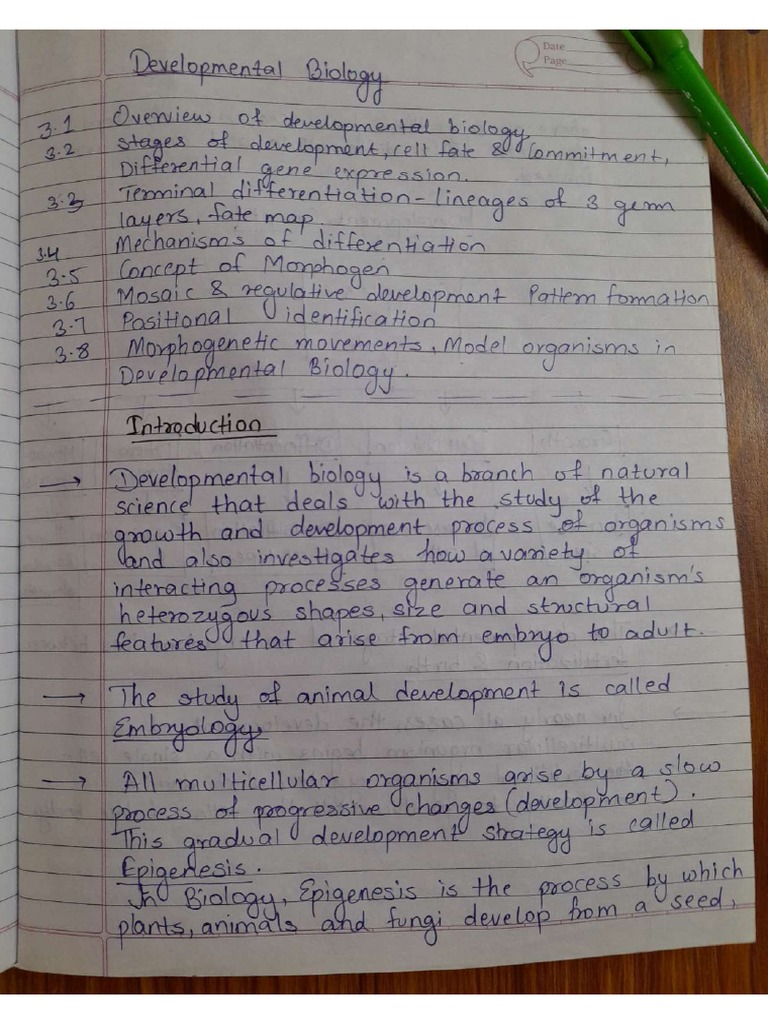 Date
Page
Developmental Biology
3.1 Overview of developmental biology
3.2 stages of development, cell fate & Commitment,
Differential gene expression.
3.3 Terminal differentiation - lineages of 3 germ
layers, fate map.
3.4 Mechanism's of differentiation
3.5 Concept of Morphogen
3.6 Mosaic & regulative development Pattern formation
3.7 Positional identification
3.8 Morphogenetic movements, Model organisms in
Developmental Biology.
Introduction
→ Developmental biology is a branch of natural
science that deals with the study of the
growth and development process of organisms
and also investigates how a variety of
interacting processes generate an organism's
heterozygous shapes, size and structural
features that arise from embryo to adult.
→ The study of animal development is called
Embryology
→ All multicellular organisms arise by a slow
process of progressive changes (development).
This gradual development strategy is called
Epigenesis.
In Biology, Epigenesis is the process by which
plants, animals and fungi develop from a seed,